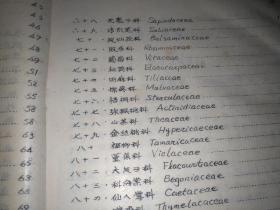 六十八、无患子科 Sapindaceae
六十九、清风藤科 Sabiaceae
七十、凤仙花科 Balsaminaceae
七十一、鼠李科 Rhamnaceae
七十二、葡萄科 Vitaceae
七十三、杜英科 Elaeocarpaceae
七十四、田麻科 Tiliaceae
七十五、锦葵科 Malvaceae
七十六、梧桐科 Sterculiaceae
七十七、猕猴桃科 Actinidiaceae
七十八、山茶科 Theaceae
七十九、金丝桃科 Hypericaceae
八十、柽柳科 Tamaricaceae
八十一、堇菜科 Violaceae
八十二、大风子科 Flacourtiaceae
八十三、秋海棠科 Begoniaceae
八十四、仙人掌科 Cactaceae
瑞香科 Thymelacaceae
49
51
52
55
58
58
59
63
64
65
66
69
69